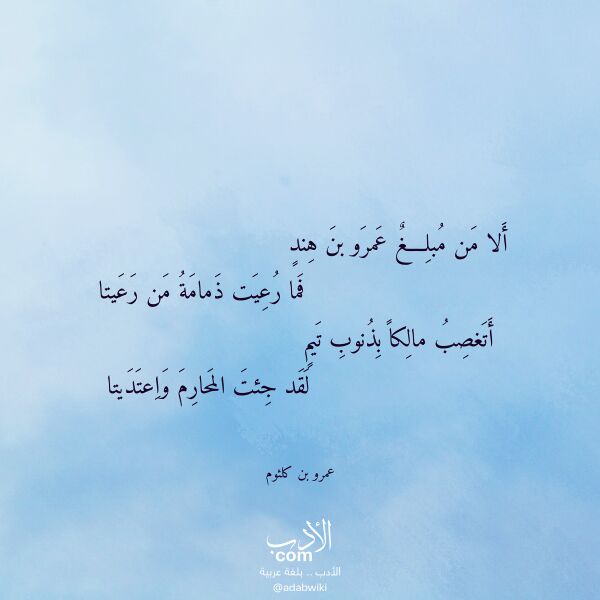 أَلا مَن مُبلِــغٌ عَمرَو بنَ هِندٍ
فَما رُعِيَت ذَمامَةُ مَن رَعَيتا
أَتَغصِبُ مالِكاً بِذُنوبِ تَيمٍ
لَقَد جِئتَ المَحارِمَ وَاِعتَدَيتا
عمرو بن كلثوم
الأدب
com
الأدب .. بلغة عربية
@adabwiki